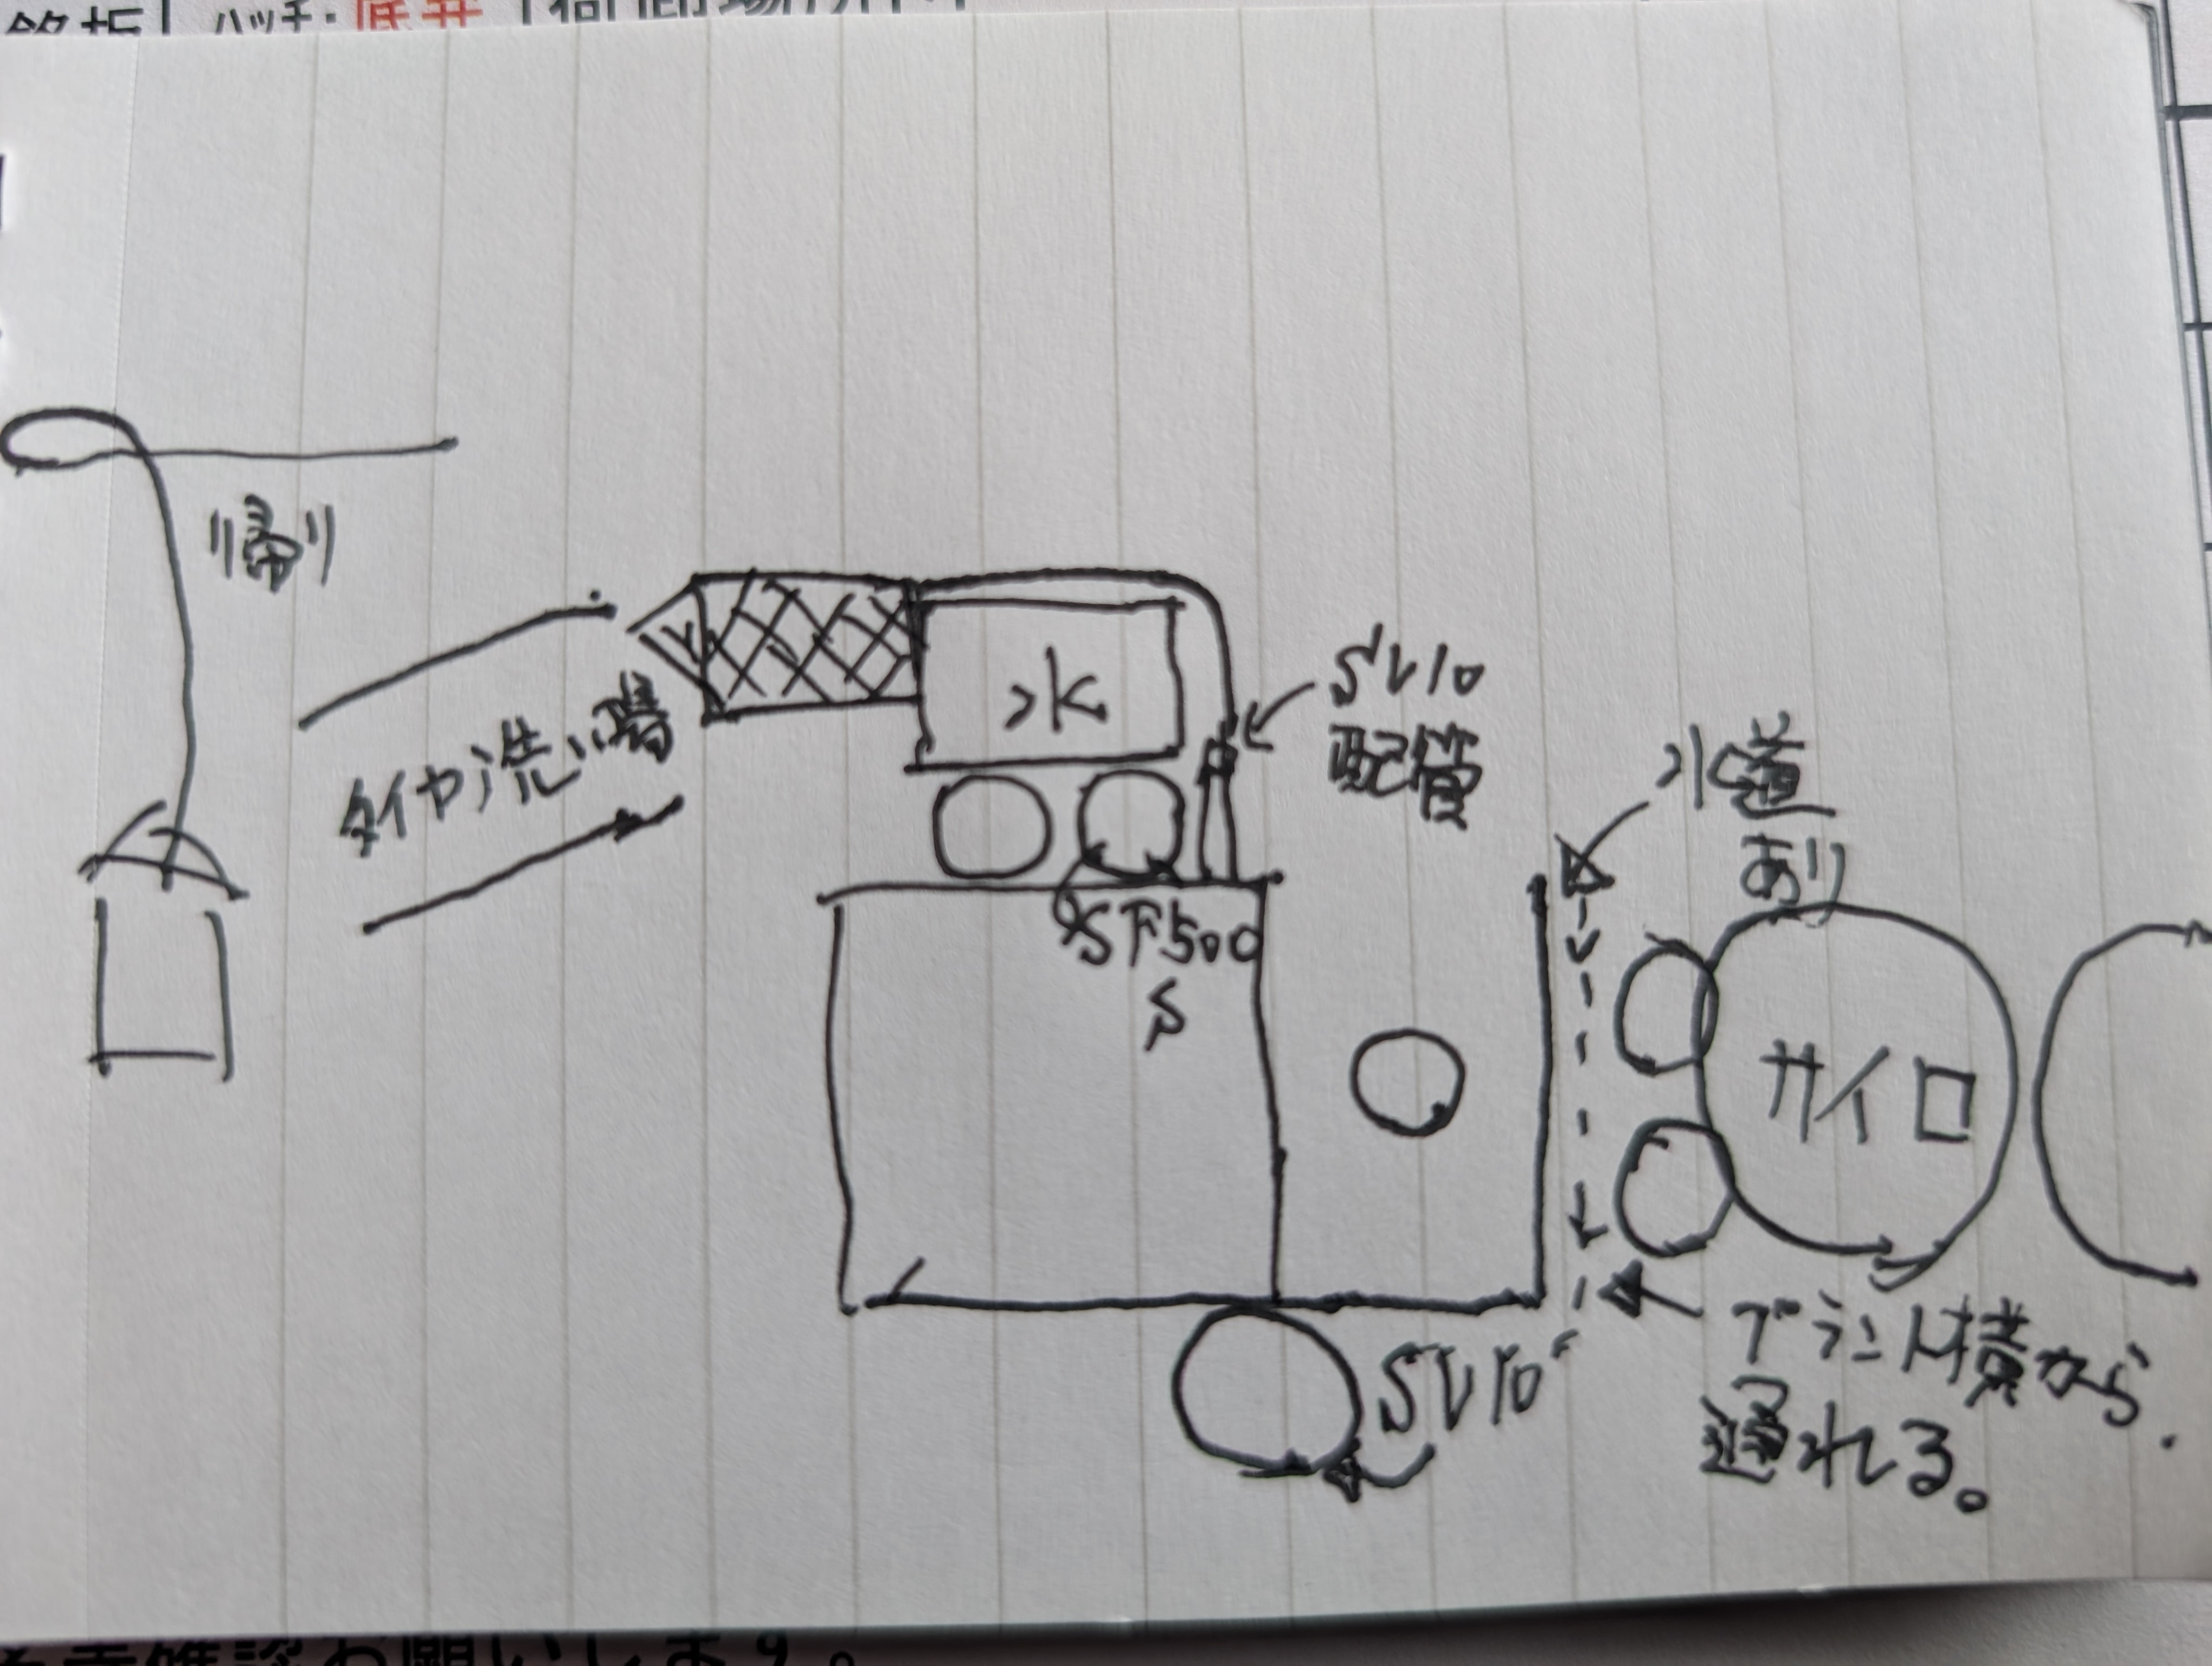 ハッチ・底弁
帰り
タイヤ洗い場
水
SV10
配管
水道
あり
SF500
S
サイロ
SV10
プラント横から
通れる。
お願いします。